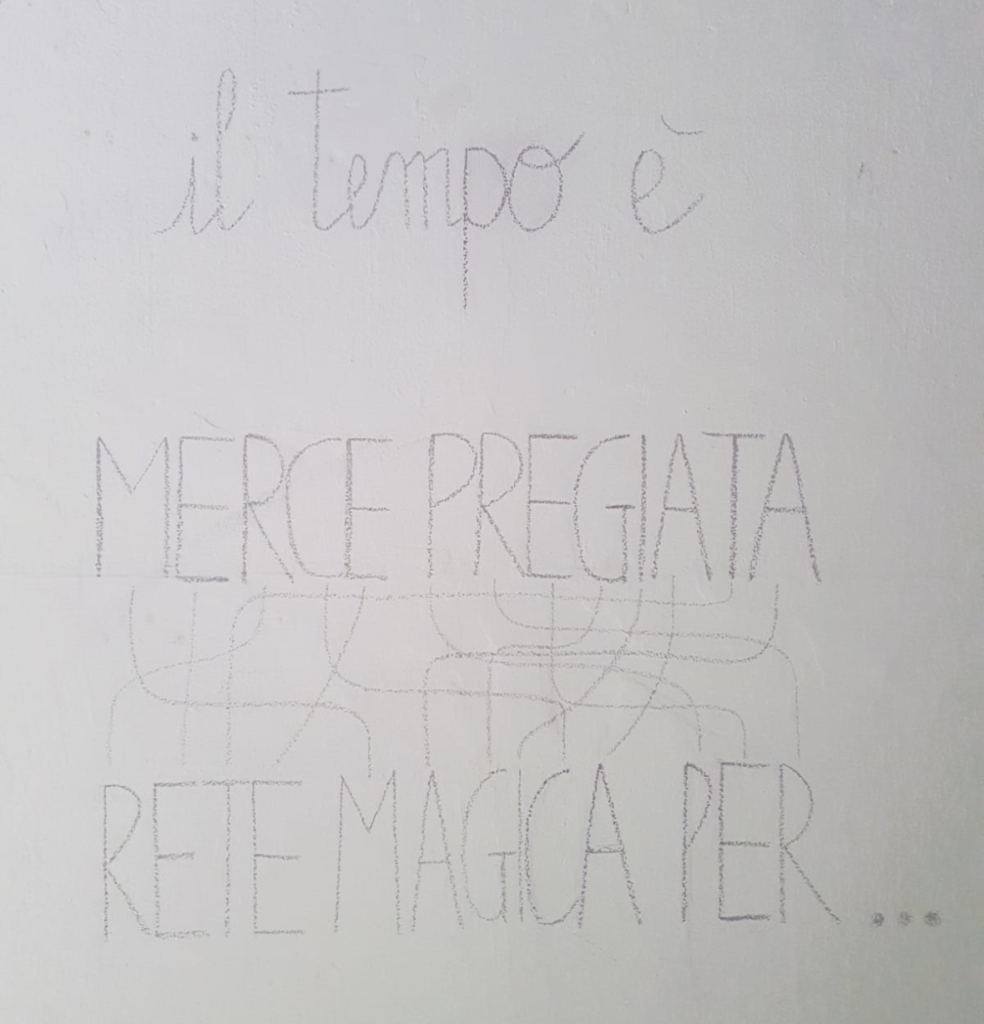 il tempo è
MERCE PREGIATA
RETE MAGICA PER ...